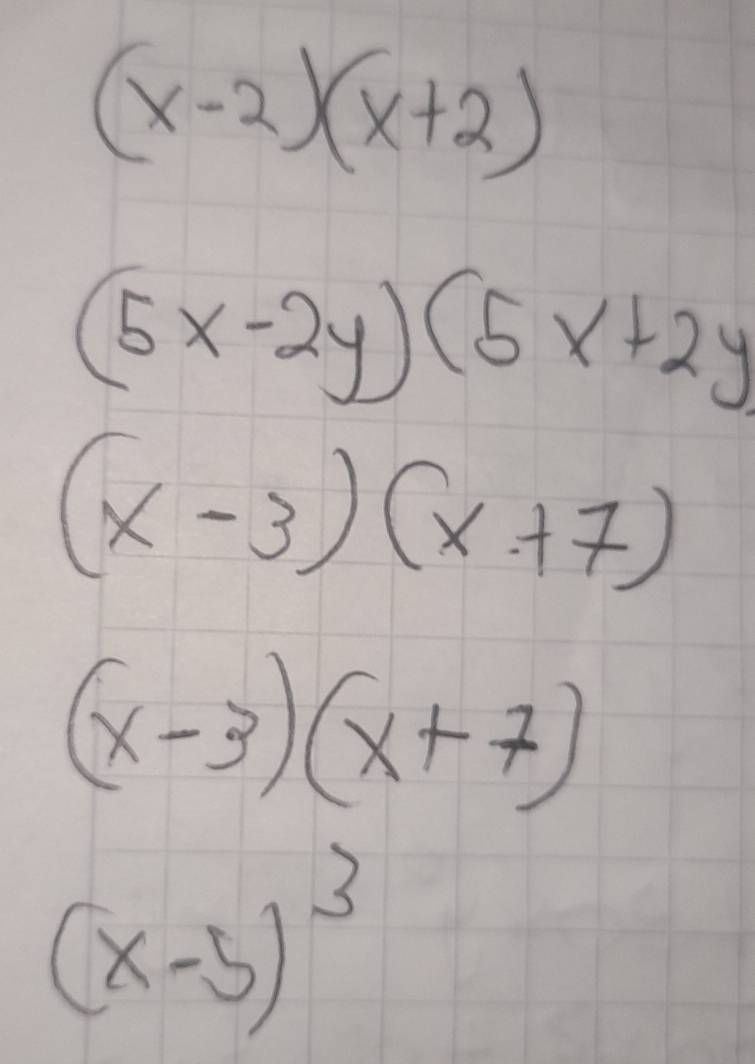 (x-2)(x+2)
(5x-2y)(5x+2y
(x-3)(x+7)
(x-3)(x+7)
(x-5)³